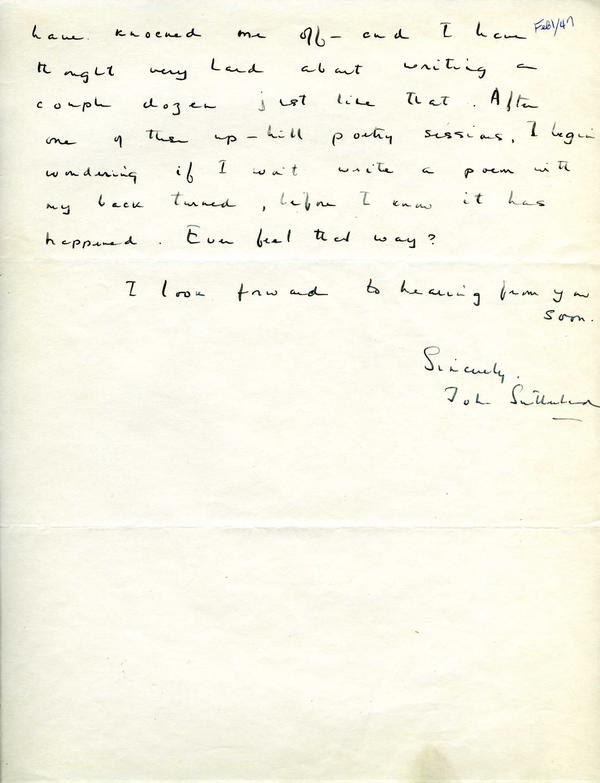 Feb1/47
have knocked me off - and I have
thought very hard about writing a
couple dozen just like that. After
one of these up-hill poetry sessions, I begin
wondering if I won't write a poem with
my back turned, before I know it has
happened. Ever feel that way?
I look forward to hearing from you
soon.
Sincerely,
John Sutherland